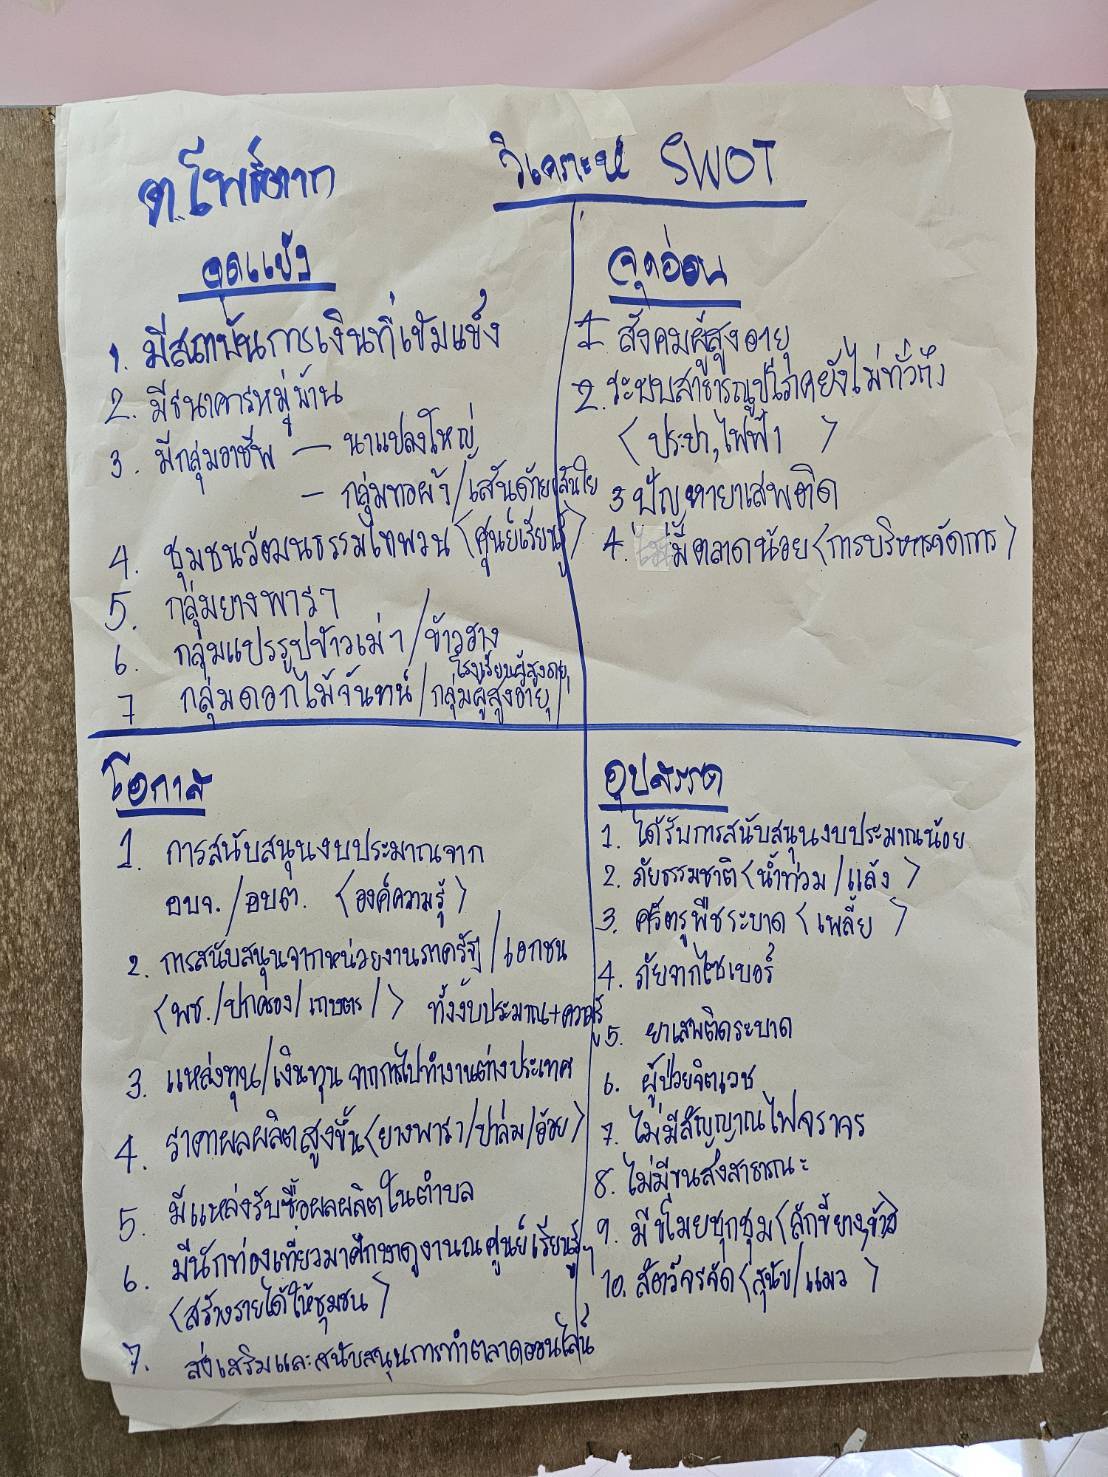 ต.โพธิ์ตาก
วิเคราะห์ SWOT
จุดแข็ง
1. มีสถาบันการเงินที่เข้มแข็ง
2. มีธนาคารหมู่บ้าน
3. มีกลุ่มอาชีพ – นาแปลงใหญ่
– กลุ่มทอผ้า/เส้นด้าย เส้นใย
4. ชุมชนวัฒนธรรมไทพวน (ศูนย์เรียนรู้)
5. กลุ่มยางพาราฯ
6 กลุ่มแปรรูปข้าวเม่า/ข้าวฮาง
โรงเรียนผู้สูงอายุ
7 กลุ่มดอกไม้จันทน์/กลุ่มผู้สูงอายุ/
จุดอ่อน
1 สังคมผู้สูงอายุ
2. ระบบสาธารณูปโภคยังไม่ทั่วถึง
(ประปา, ไฟฟ้า)
3 ปัญหายาเสพติด
4. มีตลาดน้อย (การบริหารจัดการ)
โอกาส
1. การสนับสนุนงบประมาณจาก
อบจ./อบต. (องค์ความรู้)
2. การสนับสนุนจากหน่วยงานภาครัฐ/เอกชน
(พช./ปกครอง/เกษตร/) ทั้งงบประมาณ+ความรู้
3. แหล่งทุน/เงินทุน จากการไปทำงานต่างประเทศ
4. ราคาผลผลิตสูงขึ้น (ยางพารา/ปาล์ม/อ้อย)
5. มีแหล่งรับซื้อผลผลิตในตำบล
6. มีนักท่องเที่ยวมาศึกษาดูงาน ณ ศูนย์เรียนรู้ฯ
(สร้างรายได้ให้ชุมชน)
7. ส่งเสริมและสนับสนุนการทำตลาดออนไลน์
อุปสรรค
1. ได้รับการสนับสนุนงบประมาณน้อย
2. ภัยธรรมชาติ (น้ำท่วม/แล้ง)
3. ศัตรูพืชระบาด (เพลี้ย)
4. ภัยจากไซเบอร์
5. ยาเสพติดระบาด
6. ผู้ป่วยจิตเวช
7. ไม่มีสัญญาณไฟจราจร
8. ไม่มีขนส่งสาธารณะ
9. มีขโมยชุกชุม (ลักขี้ยาง,ข้าว)
10. สัตว์จรจัด (สุนัข/แมว)